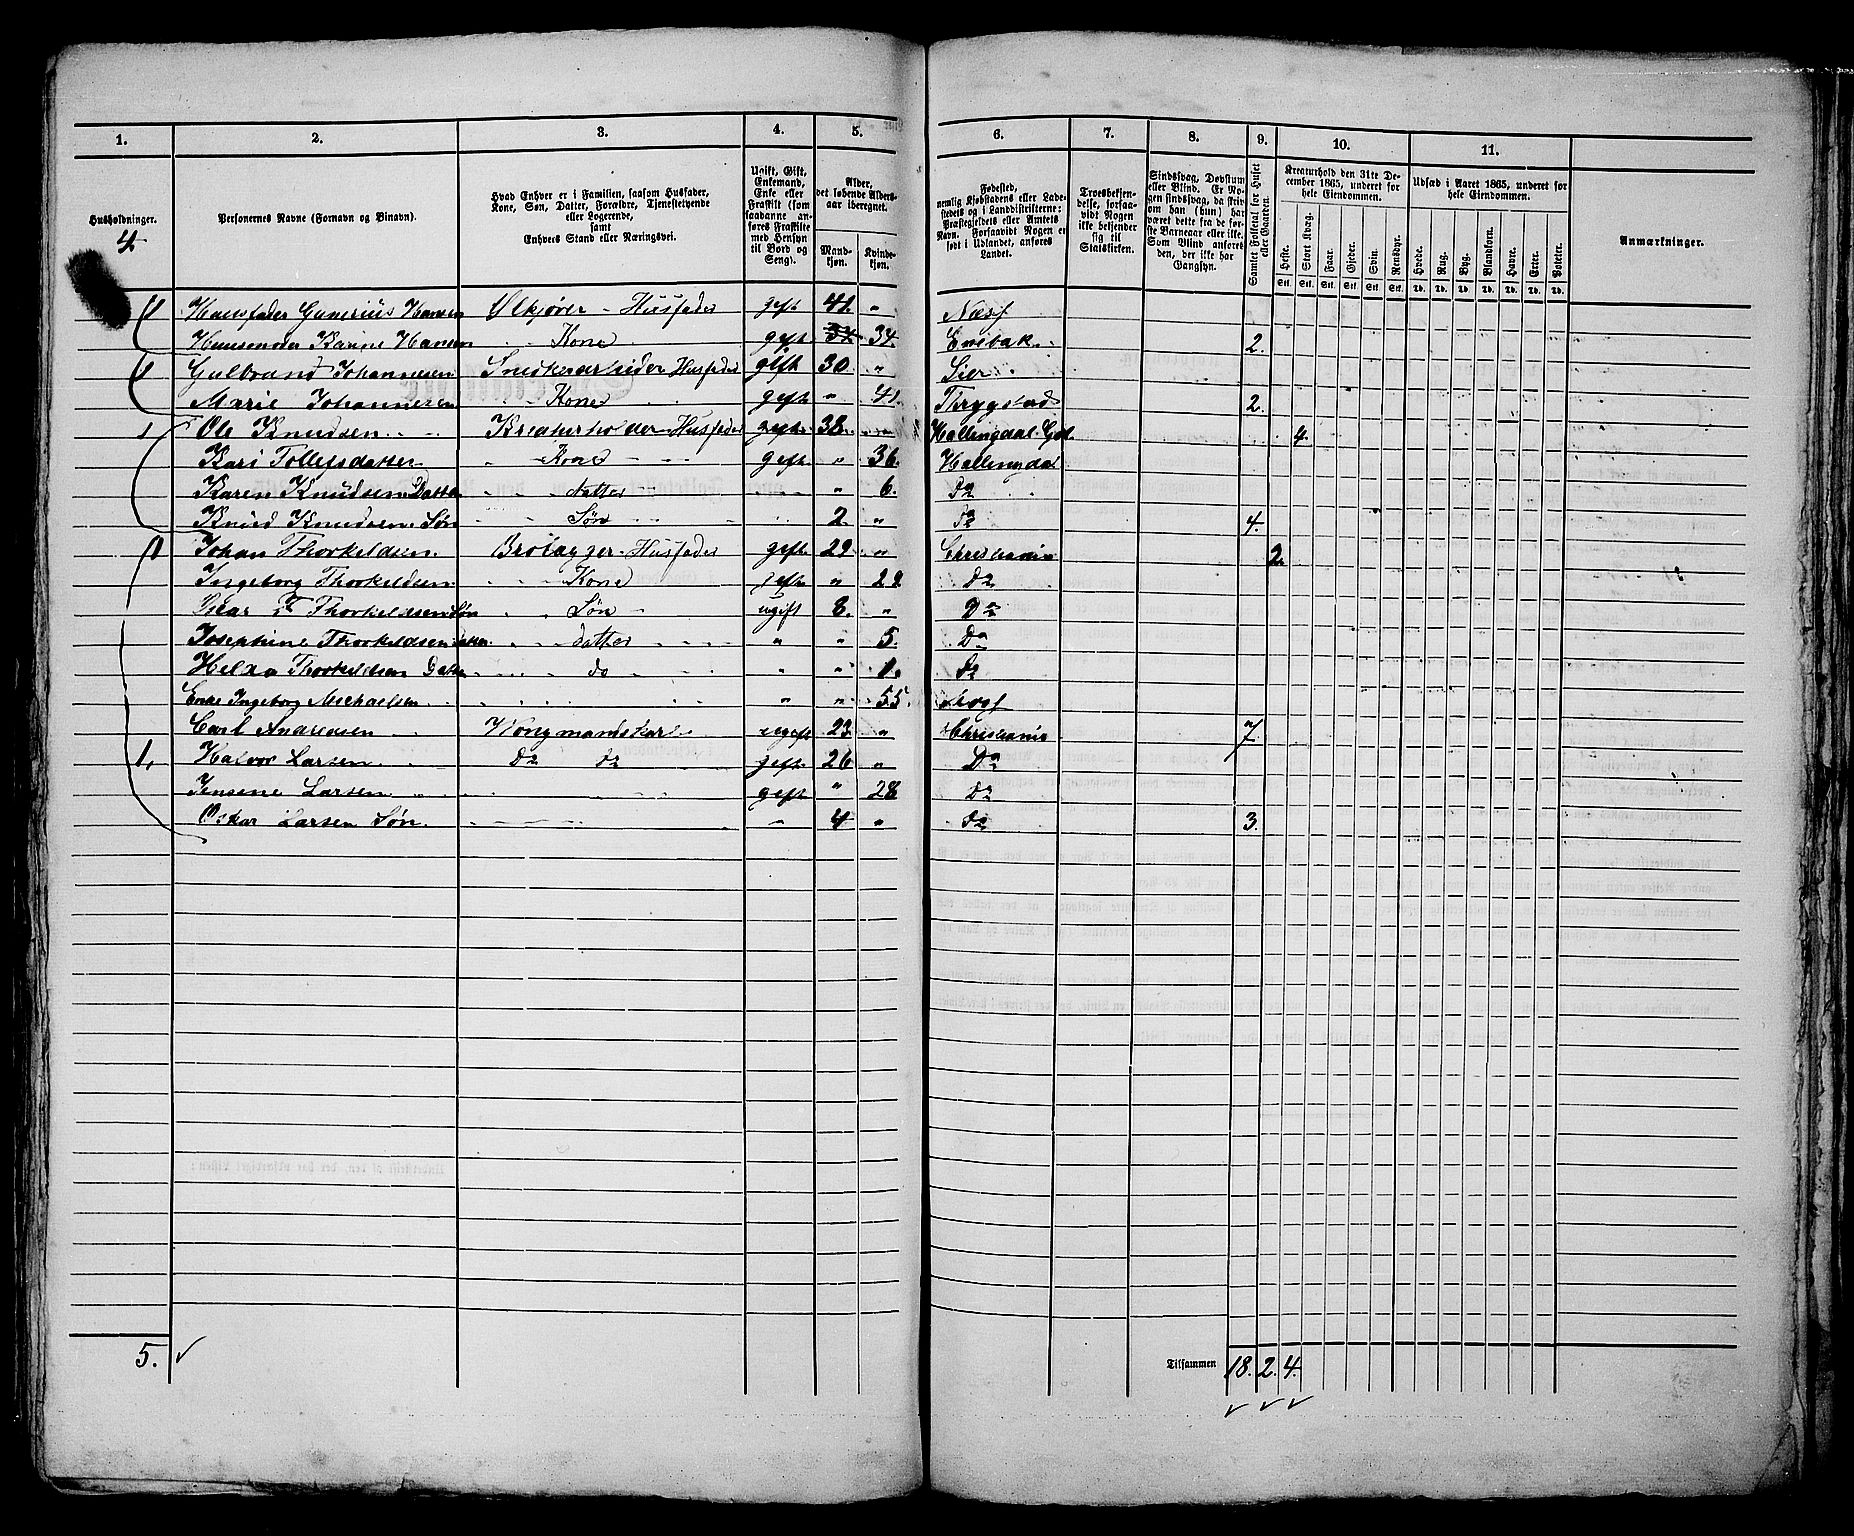 1. 2. 3. 4. 5. 6. 7. 8. 9. 10. 11.
Husholdninger.
4
Personernes Navne (Fornavn og Binavn).
Hvad Enhver er i Familien, saasom Husfader, Kone, Søn, Datter, Forældre, Tjenestetyende eller Logerende, samt Enhvers Stand eller Næringsvei.
Ugift, Gift, Enkemand, Enke eller Fraskilt (som saadanne anføres Fraskilte med Hensyn til Bord og Seng).
Alder, det løbende Aldersaar iberegnet.
Mandkjøn. Kvindekjøn.
Fødested, nemlig Kjøbstadens eller Ladestedets og i Landdistrikterne: Præstegjeldets eller Amtets Navn. Forsaavidt Nogen er født i Udlandet, anføres Landet.
Troesbekjendelse, forsaavidt Nogen ikke bekjender sig til Statskirken.
Sindssvag, Døvstum eller Blind. Er Nogen sindssvag, da skrives om han (hun) har været dette fra de første Barneaar eller ikke. Som Blind anføres den, der ikke har Gangsyn.
Samlet Folketal for Huset eller Gaarden.
Kreaturhold den 31te December 1865, underet for hele Eiendommen.
Heste. Stort Kvæg. Faar. Gjeder. Svin. Rensdyr.
Stk. Stk. Stk. Stk. Stk. Stk.
Udsæd i Aaret 1865, underet for hele Eiendommen.
Hvede. Rug. Byg. Blandkorn. Havre. Erter. Poteter.
Td. Td. Td. Td. Td. Td. Td.
Anmærkninger.
1 Huusfader Gunerius Hansen Ølkjører - Husfader gift 41. " Næss
Huusmoder Karine Hansen " " Kone gift 34 34. Enebak 2.
1 Gulbrand Johannesen Snedkerarbeider Husfader gift 30 " Lier
Marie Johannesen Kone gift " 41. Thrygstad 2.
1 Ole Knudsen Kreaturholder Husfader gift 38 " Hallingdal 4.
Kari Tollefsdatter " Kone gift " 36. Hallingdal
Karen Knudsen Datter Datter " 6. do
Knud Knudsen Søn Søn 2. " do 4.
1 Johan Thorkeldsen Husfader gift 29 " Christiania 2.
Ingeborg Thorkeldsen Kone gift " 29 Do
Thorkeldsen Søn Søn ugift 8. " Do
Josephine Thorkeldsen Datter datter " " 5. Do
Thorkeldsen Datter do " " 1. do
Enke Ingeborg Michaelsen " " 55.
Carl Andresen ugift 23 " Christiania 7.
1. Halvor Larsen Do do gift 26 " Do
Jensine Larsen gift " 28 Do
Oskar Larsen Søn. 4 " do 3.
5. Tilsammen 18. 2. 4.